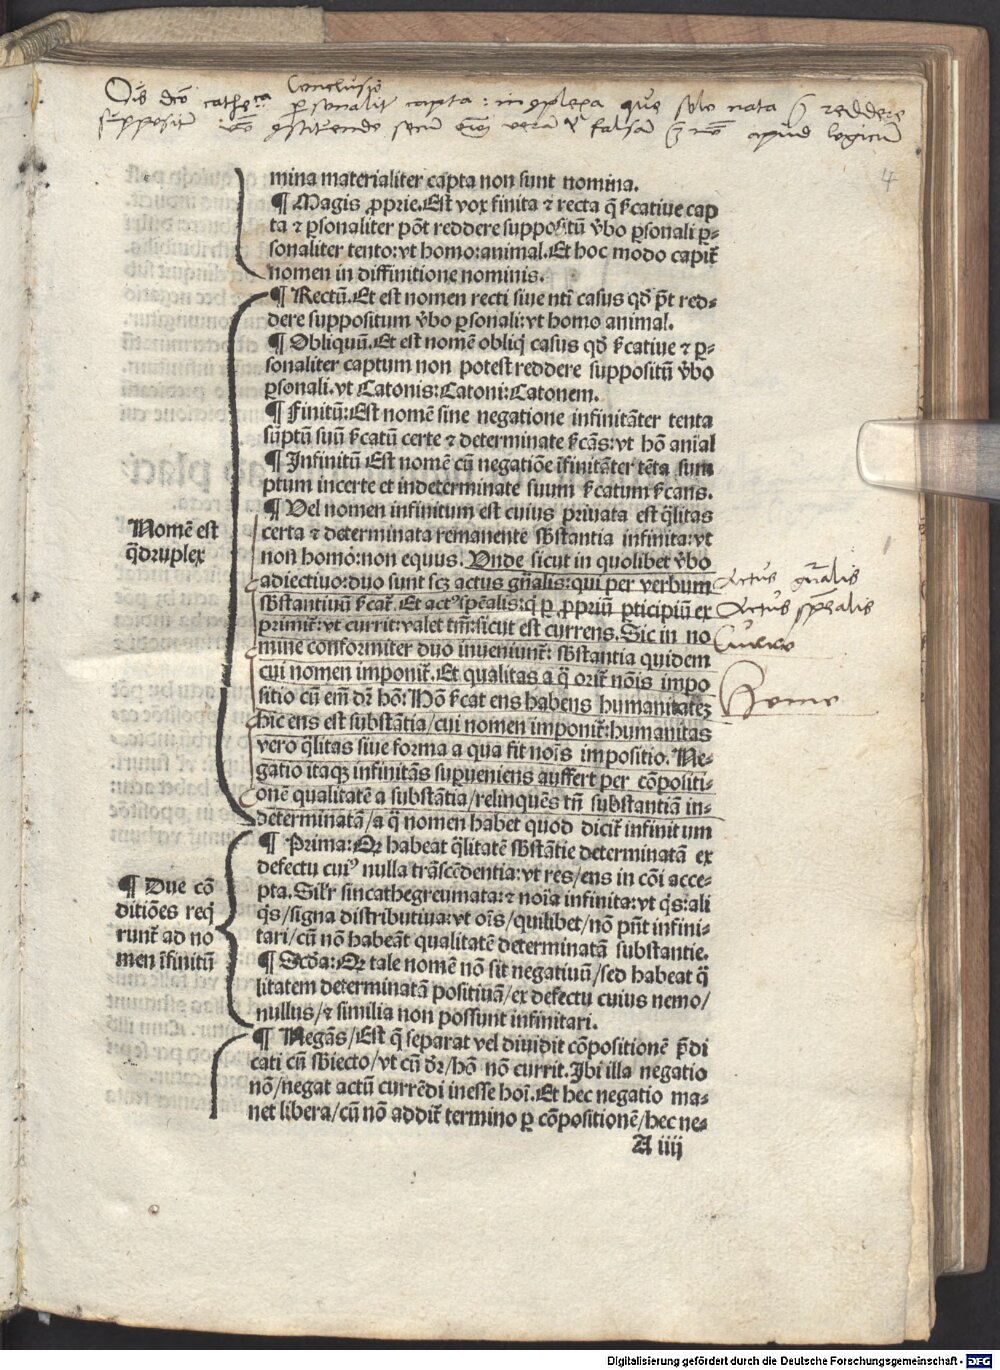 Conclusio
4
mina materialiter capta non sunt nomina.
¶ Magis ꝓprie. Est vox finita ⁊ recta q̄ ſ̄catiue cap
ta ⁊ ꝑsonaliter põt reddere suppositũ v̄bo ꝑsonali ꝑ⸗
sonaliter tento: vt homo: animal. Et hoc modo capit̄
nomen in diffinitione nominis.
¶ Rectũ. Et est nomen recti siue nti casus qd̄ p̄t red⸗
dere suppositum v̄bo ꝑsonali: vt homo animal.
¶ Obliquũ. Et est nomẽ obliq̇ casus qd̄ ſ̄catiue ⁊ ꝑ⸗
sonaliter captum non potest reddere suppositũ v̄bo
ꝑsonali. vt Catonis: Catoni: Catonem.
¶ Finitũ: Est nomẽ sine negatione infinitãter tenta
sũptũ suũ ſ̄catũ certe ⁊ determinate ſ̄cãs: vt hõ anial
¶ Infinitũ Est nomẽ cũ negatiõe ĩfinitãter tẽta sum
ptum incerte et indeterminate suum ſ̄catum ſ̄cans.
¶ Vel nomen infinitum est cuius priuata est q̃litas
certa ⁊ determinata remanente sb̄stantia infinita: vt
non homo: non equus. Vnde sicut in quolibet v̄bo
adiectiuo: duo sunt scꝫ actus gñalis: qui per verbum
sb̄stantiuũ ſ̄cat̄. Et actꝰ sp̄ẽalis: q̇ ꝑ ꝓpriũ ꝑticipiũ ex
primit̄: vt currit: valet tm̄: sicut est currens. Sic in no
mine conformiter duo inueniunt̄: sb̄stantia quidem
cui nomen imponit̄. Et qualitas a q̃ orit̄ nõis impo
sitio cũ em̄ dr̄ hõ: Hõ ſ̄cat ens habens humanitatẽ
hic ens est substãtia/cui nomen imponit̄: humanitas
vero q̃litas siue forma a qua fit nõis impositio. Ne⸗
gatio itaqꝫ infinitãs suꝑueniens auffert per cõpositi⸗
onẽ qualitatẽ a substãtia/relinquẽs tñ substantiã in⸗
determinatã/a q̃ nomen habet quod dicit̄ infinitum
Nomẽ est
q̃druplex
Actus gñalis
Actus sp̄ealis
Curro
Homo
¶ Prima: Qꝫ habeat q̃litatẽ sb̄stãtie determinatã ex
defectu cuiꝰ nulla trãscẽdentia: vt res/ens in cõi acce⸗
pta. Sil̄r sincathegreumata: ⁊ noĩa infinita: vt q̇s: ali
q̇s/signa distributiua: vt oĩs/quilibet/nõ pñt infini⸗
tari/cũ nõ habeãt qualitatẽ determinatã substantie.
¶ Scd̄a: Qꝫ tale nomẽ nõ sit negatiuũ/sed habeat q̃
litatem determinatã positiuã/ex defectu cuius nemo/
nullus/⁊ similia non possunt infinitari.
¶ Due cõ
ditiões req̇
runt̄ ad no
men ĩfinitũ
¶ Negãs/Est q̃ separat vel diuidit cõpositionẽ p̄di
cati cũ sb̄iecto/vt cũ dr̄/hõ nõ currit. Ibi illa negatio
nõ/negat actũ currẽdi inesse hoĩ. Et hec negatio ma⸗
net libera/cũ nõ addit̄ termino ꝑ cõpositionẽ/hec ne⸗
A iiij
Digitalisierung gefördert durch die Deutsche Forschungsgemeinschaft - DFG